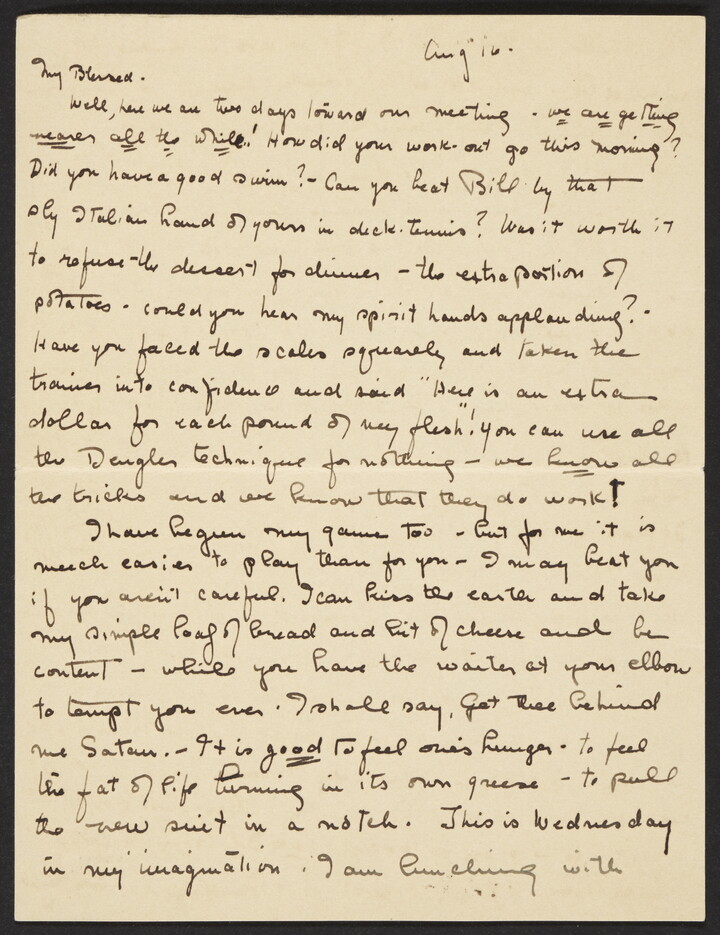 Aug 16.
My Blessed.
Well, here we are two days toward our meeting - we are getting
nearer all the while! How did your work-out go this morning?
Did you have a good swim? - Can you beat Bill by that
sly Italian hand of yours in deck-tennis? Was it worth it
to refuse the dessert for dinner - the extra portion of
potatoes - could you hear my spirit hands applauding? -
Have you faced the scales squarely and taken the
trainer into confidence and said "Here is an extra
dollar for each pound of my flesh"! You can use all
the Dengler technique for nothing - we know all
the tricks and we know that they do work!
I have begun my game too - but for me it is
much easier to play than for you - I may beat you
if you aren't careful. I can kiss the earth and take
my simple loaf of bread and bit of cheese and be
content - while you have the waiter at your elbow
to tempt you ever. I shall say, Get thee behind
me Satan. - It is good to feel one's hunger - to feel
the fat of life burning in its own grease - to pull
the new suit in a notch. This is Wednesday
in my imagination. I am lunching with